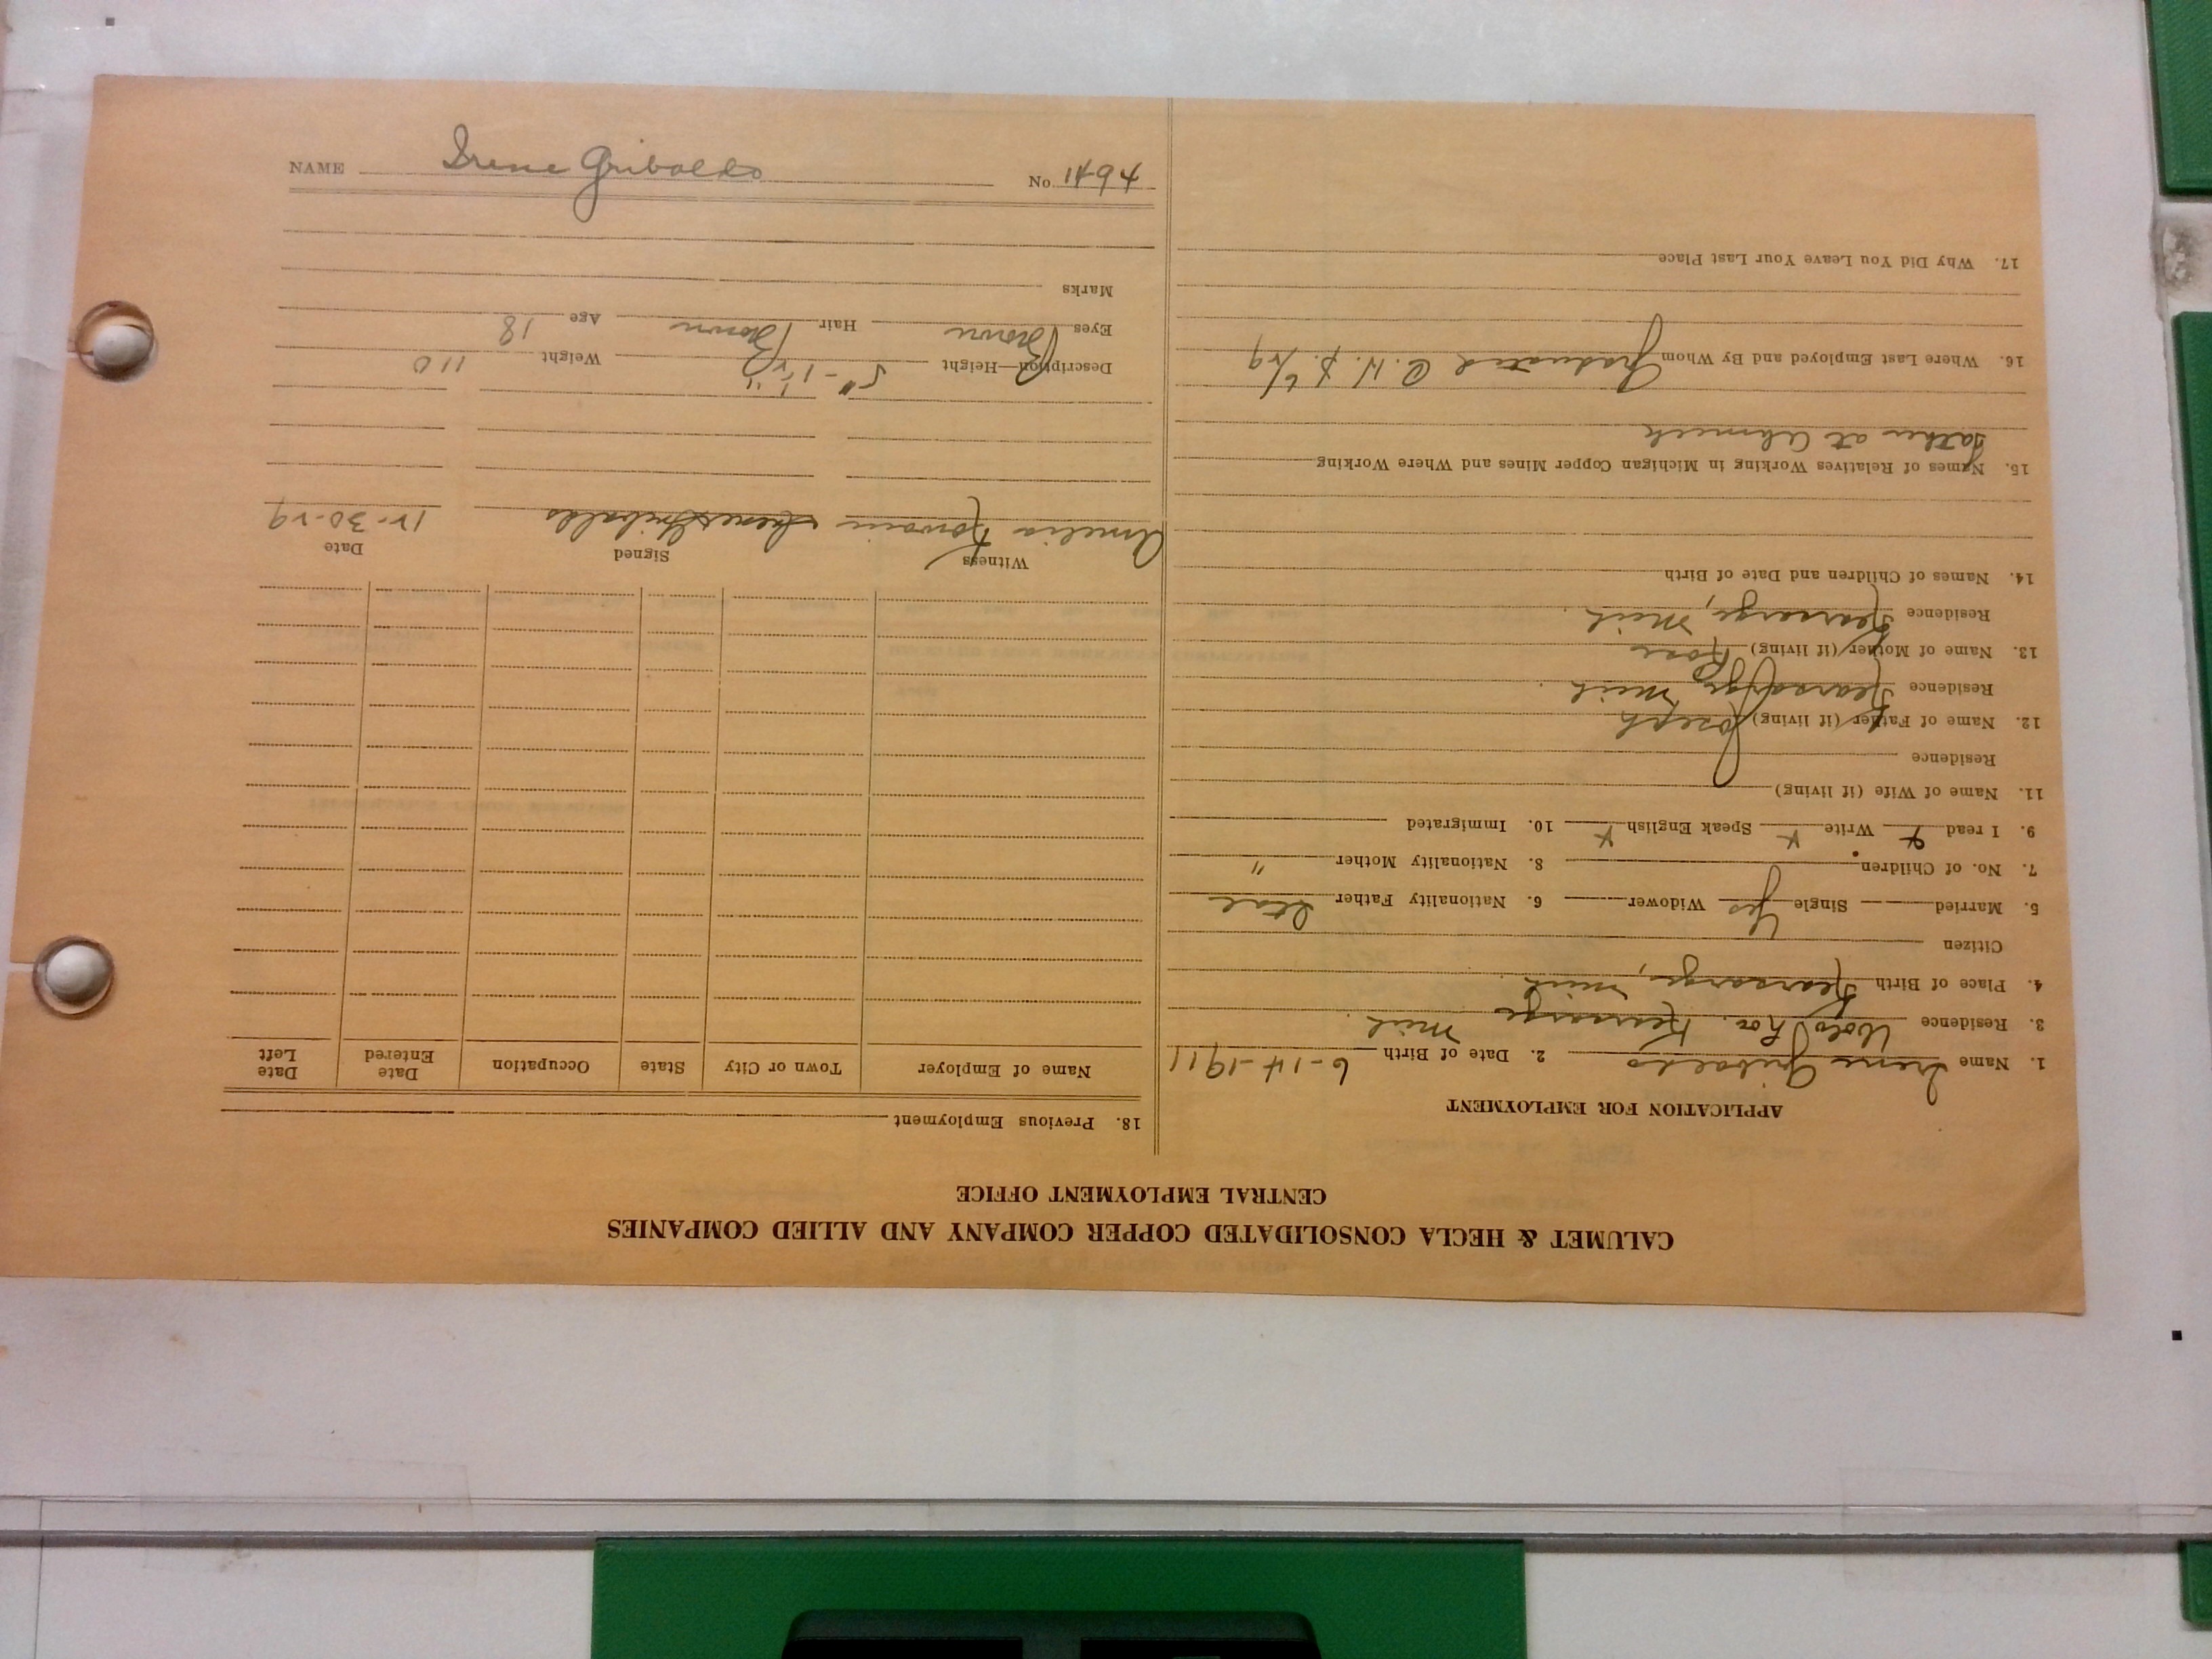 CALUMET & HECLA CONSOLIDATED COPPER COMPANY AND ALLIED COMPANIES
CENTRAL EMPLOYMENT OFFICE
APPLICATION FOR EMPLOYMENT
1. Name Irene Gribaldo 2. Date of Birth 6-14-1911
3. Residence Kearsarge Mich.
4. Place of Birth Kearsarge, Mich.
Citizen
5. Married Single Yes Widower 6. Nationality Father Ital
7. No. of Children 8. Nationality Mother "
9. I read x Write x Speak English x 10. Immigrated
11. Name of Wife (if living)
Residence
12. Name of Father (if living) Joseph
Residence Kearsarge Mich.
13. Name of Mother (if living) Rose
Residence Kearsarge, Mich.
14. Names of Children and Date of Birth
15. Names of Relatives Working in Michigan Copper Mines and Where Working
Father at Ahmeek
16. Where Last Employed and By Whom Graduated C. H. S. 6/29
17. Why Did You Leave Your Last Place
18. Previous Employment
Name of Employer Town or City State Occupation Date Entered Date Left
Witness Signed Date
Amelia Irene Gribaldo 12-30-29
Description—Height 5"-1½" Weight 110
Eyes Brown Hair Brown Age 18
Marks
NAME Irene Gribaldo No. 1494